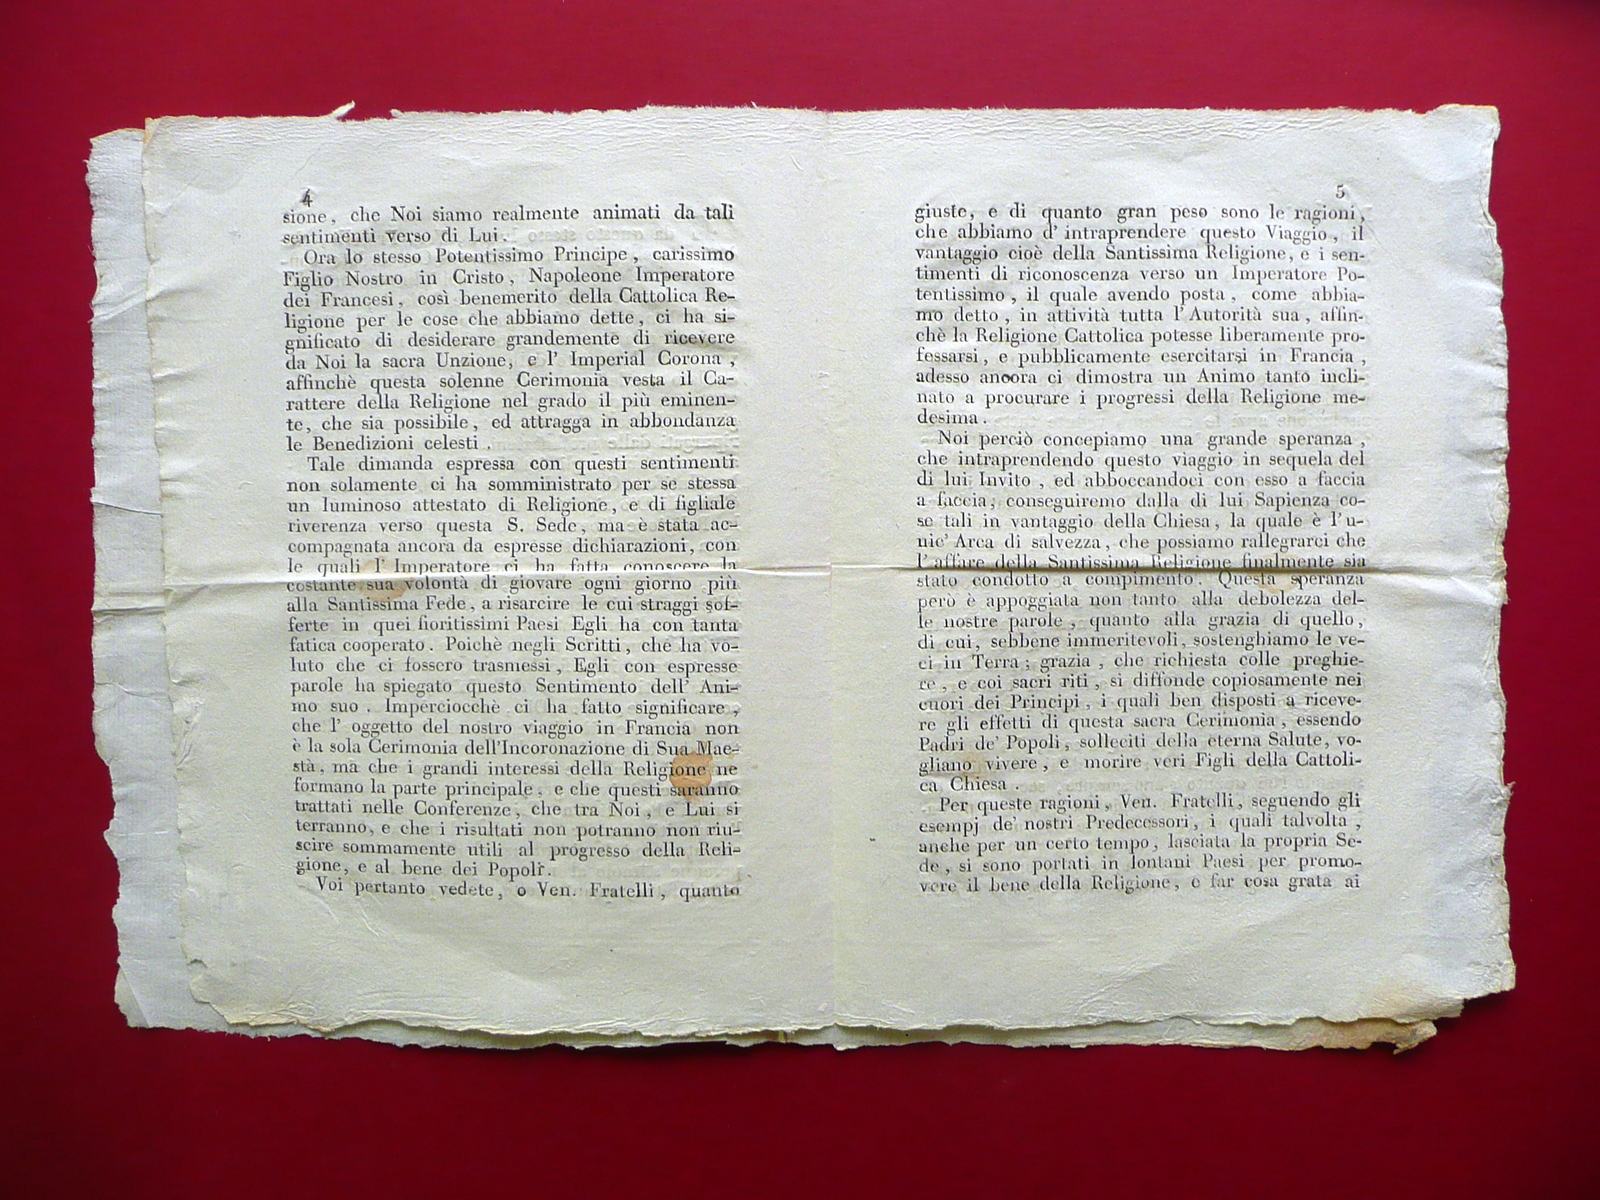 4
sione, che Noi siamo realmente animati da tali
sentimenti verso di Lui.
Ora lo stesso Potentissimo Principe, carissimo
Figlio Nostro in Cristo, Napoleone Imperatore
dei Francesi, così benemerito della Cattolica Re-
ligione per le cose che abbiamo dette, ci ha si-
gnificato di desiderare grandemente di ricevere
da Noi la sacra Unzione, e l' Imperial Corona,
affinchè questa solenne Cerimonia vesta il Ca-
rattere della Religione nel grado il più eminen-
te, che sia possibile, ed attragga in abbondanza
le Benedizioni celesti.
Tale dimanda espressa con questi sentimenti
non solamente ci ha somministrato per se stessa
un luminoso attestato di Religione, e di figliale
riverenza verso questa S. Sede, ma è stata ac-
compagnata ancora da espresse dichiarazioni, con
le quali l' Imperatore ci ha fatta conoscere la
costante sua volontà di giovare ogni giorno più
alla Santissima Fede, a risarcire le cui straggi sof-
ferte in quei fioritissimi Paesi Egli ha con tanta
fatica cooperato. Poichè negli Scritti, che ha vo-
luto che ci fossero trasmessi, Egli con espresse
parole ha spiegato questo Sentimento dell' Ani-
mo suo. Imperciocchè ci ha fatto significare,
che l' oggetto del nostro viaggio in Francia non
è la sola Cerimonia dell'Incoronazione di Sua Mae-
stà, ma che i grandi interessi della Religione ne
formano la parte principale, e che questi saranno
trattati nelle Conferenze, che tra Noi, e Lui si
terranno, e che i risultati non potranno non riu-
scire sommamente utili al progresso della Reli-
gione, e al bene dei Popoli.
Voi pertanto vedete, o Ven. Fratelli, quanto
5
giuste, e di quanto gran peso sono le ragioni,
che abbiamo d' intraprendere questo Viaggio, il
vantaggio cioè della Santissima Religione, e i sen-
timenti di riconoscenza verso un Imperatore Po-
tentissimo, il quale avendo posta, come abbia-
mo detto, in attività tutta l' Autorità sua, affin-
chè la Religione Cattolica potesse liberamente pro-
fessarsi, e pubblicamente esercitarsi in Francia,
adesso ancora ci dimostra un Animo tanto incli-
nato a procurare i progressi della Religione me-
desima.
Noi perciò concepiamo una grande speranza,
che intraprendendo questo viaggio in sequela del
di lui Invito, ed abboccandoci con esso a faccia
a faccia, conseguiremo dalla di lui Sapienza co-
se tali in vantaggio della Chiesa, la quale è l'u-
nic' Arca di salvezza, che possiamo rallegrarci che
l' affare della Santissima Religione finalmente sia
stato condotto a compimento. Questa speranza
però è appoggiata non tanto alla debolezza del-
le nostre parole, quanto alla grazia di quello,
di cui, sebbene immeritevoli, sostenghiamo le ve-
ci in Terra; grazia, che richiesta colle preghie-
re, e coi sacri riti, si diffonde copiosamente nei
cuori dei Principi, i quali ben disposti a riceve-
re gli effetti di questa sacra Cerimonia, essendo
Padri de' Popoli, solleciti della eterna Salute, vo-
gliano vivere, e morire veri Figli della Cattoli-
ca Chiesa.
Per queste ragioni, Ven. Fratelli, seguendo gli
esempj de' nostri Predecessori, i quali talvolta,
anche per un certo tempo, lasciata la propria Se-
de, si sono portati in lontani Paesi per promo-
vere il bene della Religione, e far cosa grata ai